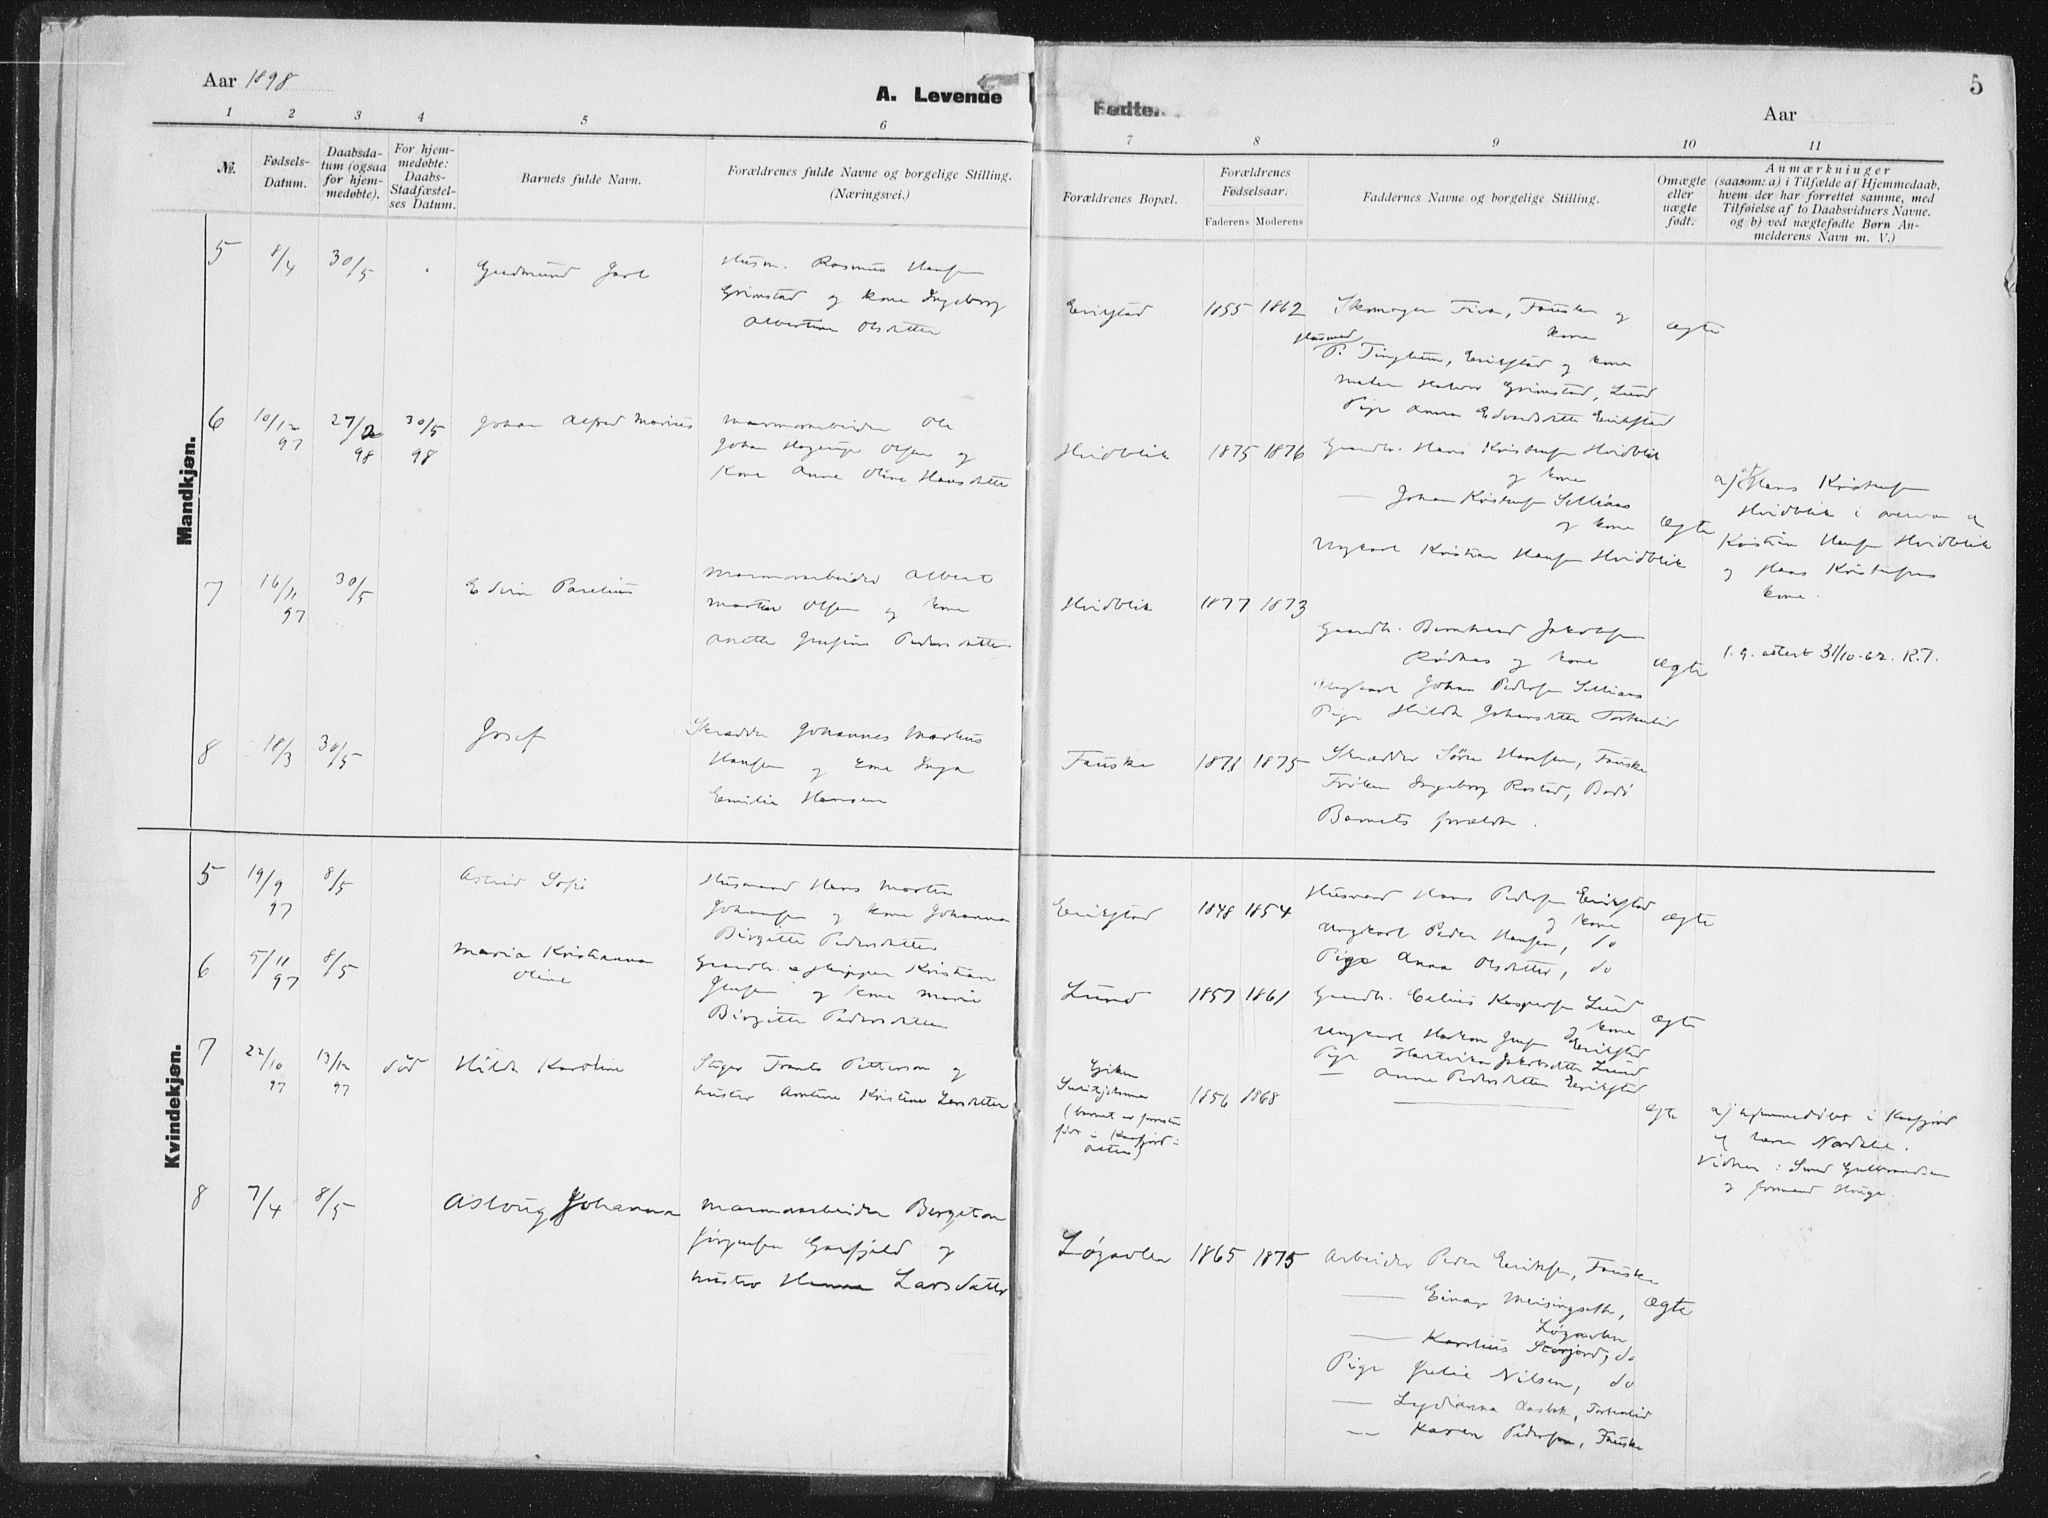 Aar 1898
A. Levende Fødte.
Aar
5
1 2 3 4 5 6 7 8 9 10 11
№.
Fødsels-
Datum.
Daabsda-
tum (ogsaa
for hjem-
medøbte).
For hjem-
medøbte:
Daabs-
Stadfæstel-
ses Datum.
Barnets fulde Navn.
Forældrenes fulde Navne og borgelige Stilling.
(Næringsvei.)
Forældrenes Bopæl.
Forældrenes
Fødselsaar.
Faderens Moderens
Faddernes Navne og borgelige Stilling.
Omægte
eller
uægte
født.
Anmærkninger
(saasom: a) i Tilfælde af Hjemmedaab,
hvem der har forrettet samme, med
Tilføielse af to Daabsvidners Navne.
og b) ved uægtefødte Børn An-
melderens Navn m. V.)
Mandkjøn.
5 8/4 30/5 Gudmund Jarl
Husm. Rasmus Hansen
Grimstad og kone Ingeborg
Albertine Olsdatter
Erikstad 1855 1862
Skomager Fauske og
kone
Husmd
P. Tingheim, Erikstad og kone
Maler Halvor Grimstad, Lund
Pige Anna Edvardsdtter Erikstad
ægte
6 10/12 97 27/2 98 30/5 98 Johan Alfred Marius
Marmorarbeider Ole
Johan Hagerup Olsen og
Kone Anne Oline Hansdatter
Hvidblik 1875 1876
Gaardbr. Hans Kristensen Hvidblik
og kone
— Johan Kristensen Selliaas
og kone
Ungkarl Kristian Hansen Hvidblik
ægte
a) af Hans Kristensen
Hvidblik i overvær af
Kristian Hansen Hvidblik
og Hans Kristensens
kone.
7 16/11 97 30/5 Edvin Parelius
Marmorarbeider Albert
Martin Olsen og kone
Anette Jensine Pedersdatter
Hvidblik 1877 1873
Gaardbr. Bernhard Jakobsen
Rødaas og kone
Ungkarl Johan Pedersen Selliaas
Pige Hilda Johansdtter Tortenlid
ægte
f. a. attest 31/10-62. R.T.
8 18/3 30/5 Josef
Skrædder Johannes Markus
Hansen og Kone Inga
Emilie Hansen
Fauske 1871 1875
Skrædder Søren Hansen, Fauske
Frøken Ingeborg Rostad, Bodø
Barnets forældre.
Kvindekjøn.
5 19/9 97 8/5 Astrid Sofie
Husmand Hans Morten
Johansen og kone Johanna
Birgitte Pedersdatter
Erikstad 1848 1854
Husmand Hans Pedersen Erikstad
og kone
Ungkarl Peder Hansen, do
Pige Anna Olsdtter, do
ægte
6 5/11 97 8/5 Maria Kristianna
Oline
Gaardbr. & skipper Kristian
Jensen og kone Marie
Birgitte Pedersdatter
Lund 1857 1861
Gaardbr. Celius Kaspersen Lund
og kone
Ungkarl Hakon Jensen Erikstad
Pige Hartvika Jakobsdtter Lund
— Anna Pedersdatter Erikstad
ægte
7 22/10 97 13/12 97 død Hilda Karoline
Stiger Frants Petterson og
hustru Amline Kristine Larsdatter
Gjiken
Sulitjelma
(barnet er
født i Kaafjord i
Alten)
1856 1868
—
ægte
a) hjemmedøbt i Kaafjord
af lærer
Vidner: Gulbrandsen
og formand Hauge.
8 7/4 8/5 Aslaug Johanna
Marmorarbeider Bergeton
Jørgensen Garfjeld og
hustru Hanna Larsdatter
Løgavlen 1865 1875
Arbeider Peder Eriksen, Fauske
— Einar Meisingseth,
Løgavlen
— Karelius Storjord, do
Pige Julie Nilsen, do
— Lydianna Aasbak, Tortenlid
— Karen Pedersen, Fauske
ægte